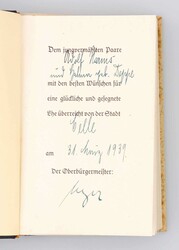 Dem jungvermählten Paare
Adolf Harms
und Frau geb. Deppe
mit den besten Wünschen für
eine glückliche und gesegnete
Ehe überreicht von der Stadt
Celle
am 31. März 1939
Der Oberbürgermeister: